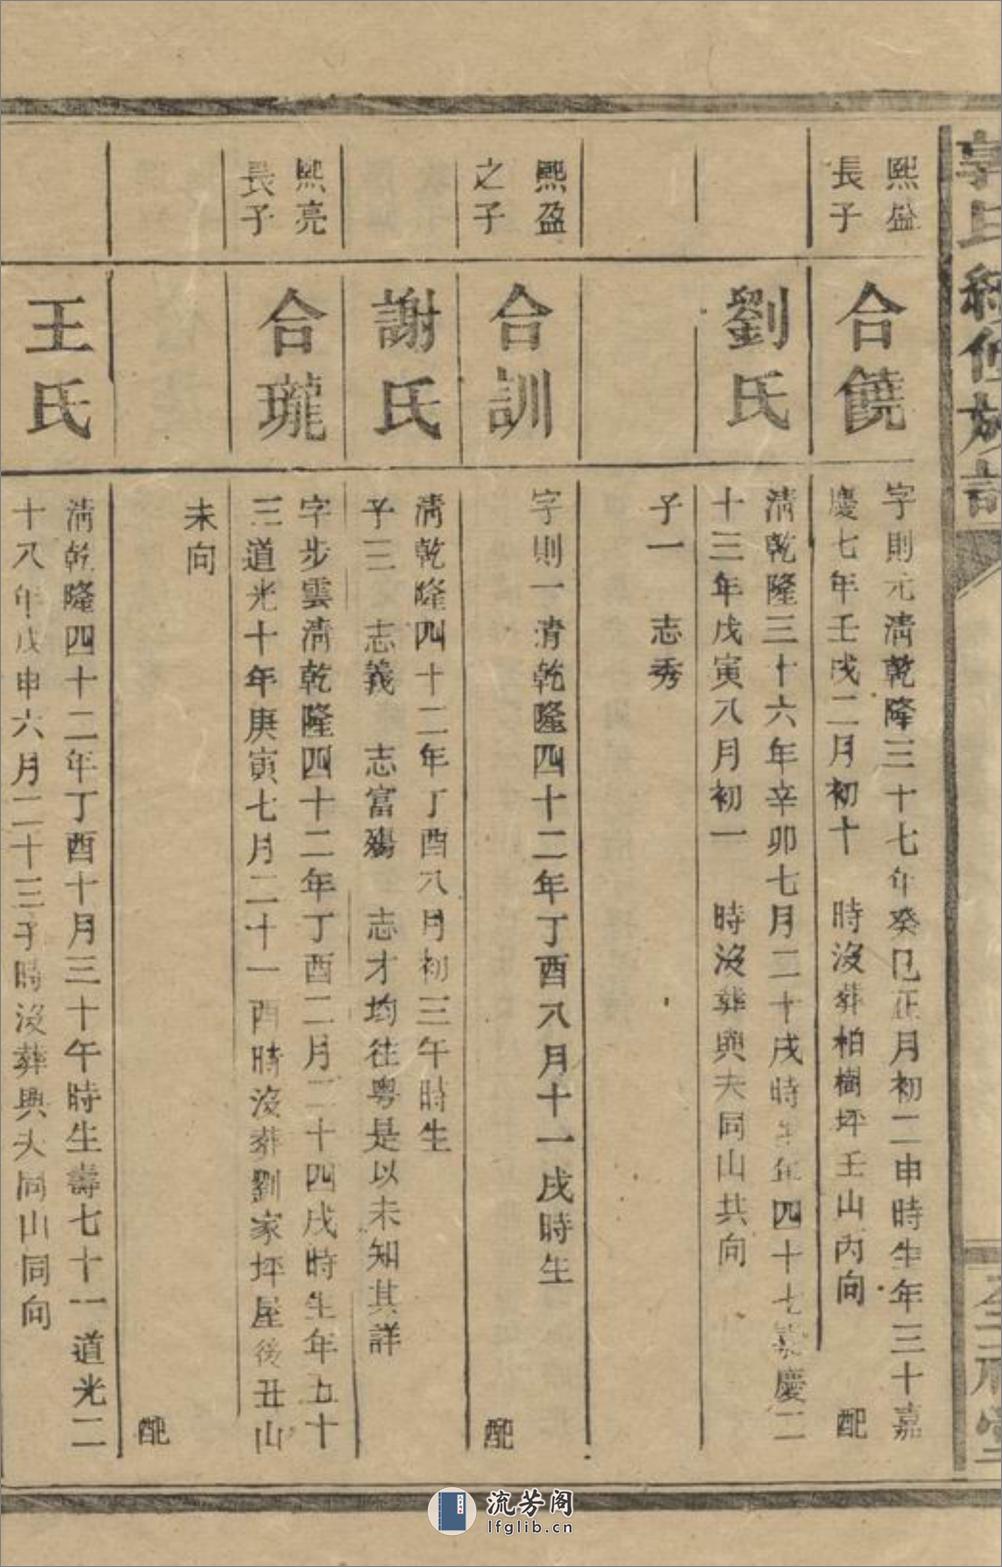 氏續修族譜
堂
熙盛
長子
合饒
字則元清乾隆三十七年癸巳正月初二申時生年三十嘉
慶七年壬戌二月初十 時沒葬柏樹坪壬山丙向 配
劉氏
清乾隆三十六年辛卯七月二十戌時生年四十七嘉慶二
十三年戊寅八月初一 時沒葬與夫同山共向
子一 志秀
熙盈
之子
合訓
字則一清乾隆四十二年丁酉八月十一戌時生
配
謝氏
清乾隆四十二年丁酉八月初三午時生
子三 志義 志富殤 志才均往粵是以未知其詳
熙亮
長子
合瓏
字步雲清乾隆四十二年丁酉二月二十四戌時生年五十
三道光十年庚寅七月二十一酉時沒葬劉家坪屋後丑山
未向 配
王氏
清乾隆四十二年丁酉十月三十午時生壽七十一道光二
十八年戊申六月二十三子時沒葬與夫同山同向
流芳阁
lfglib.cn